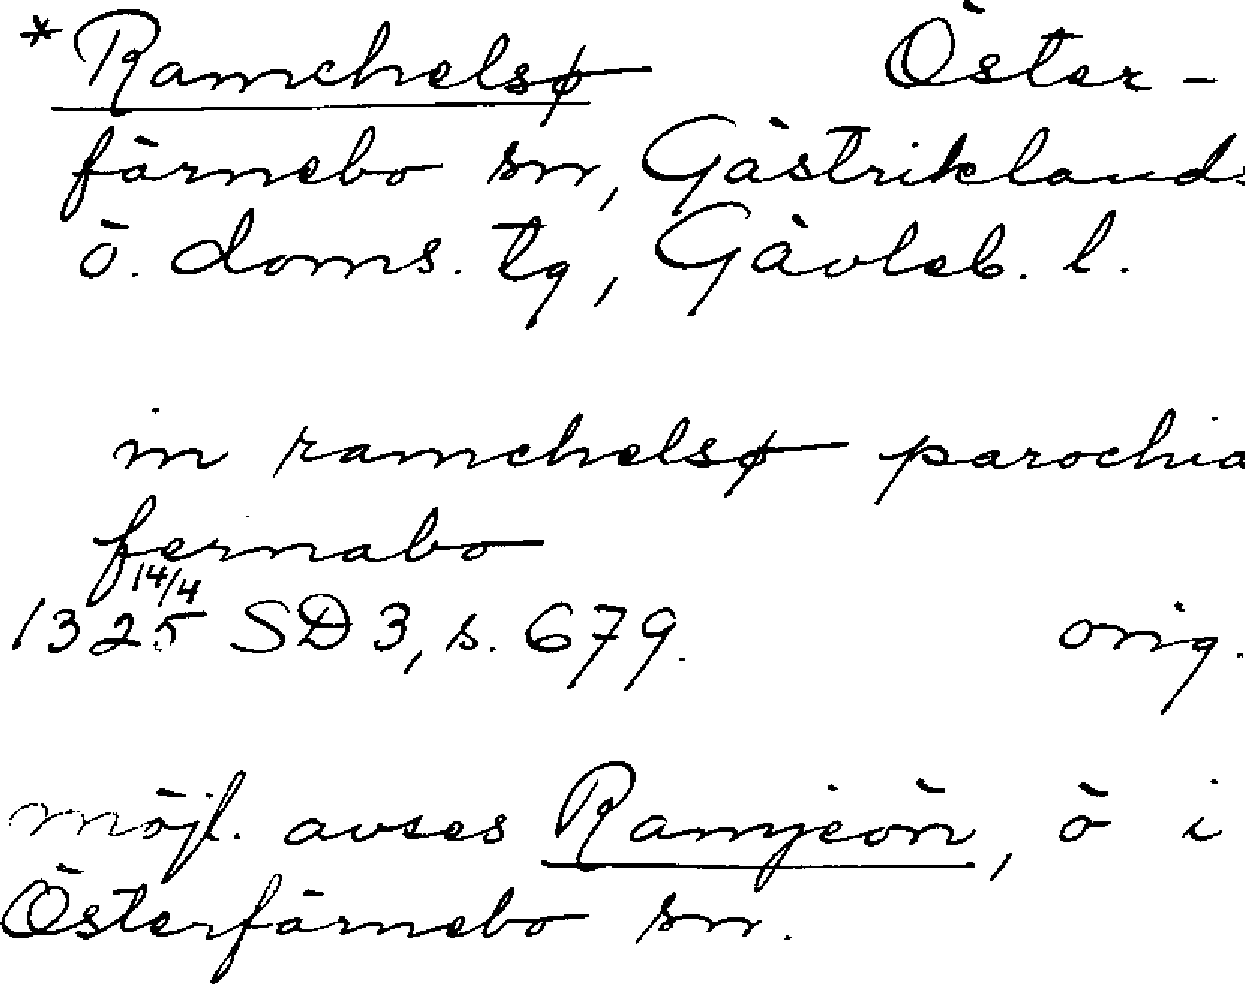 *Ramchelsø Öster-
färnebo sn, Gästriklands
ö. doms. tg, Gävleb. l.
in ramchelsø parochia
fernabo
14/4
1325 SD 3, s. 679. orig.
möjl. avses Ramjeön, ö i
Österfärnebo sn.